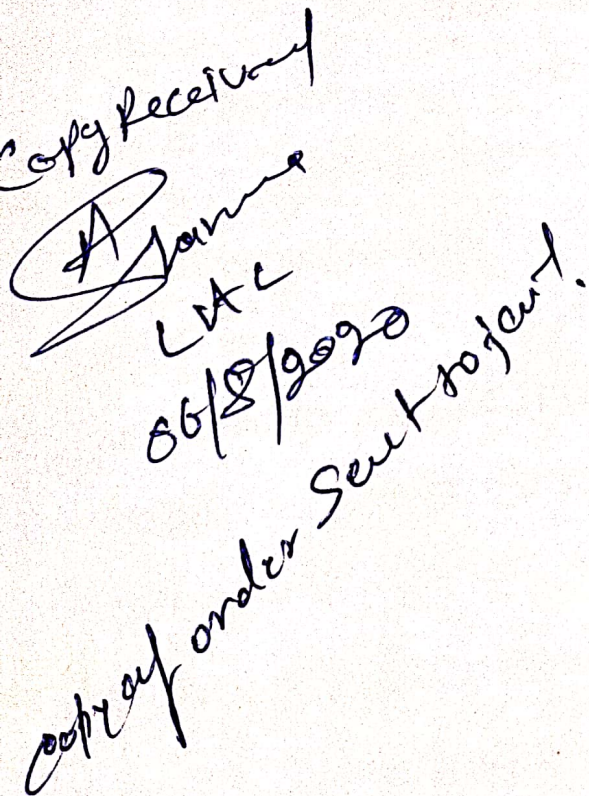 Copy Received
LAC
06/8/2020
copy of order Sent to jail.